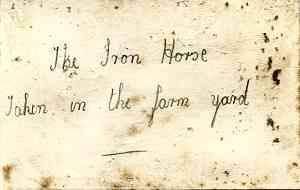 The Iron Horse
Taken in the farm yard